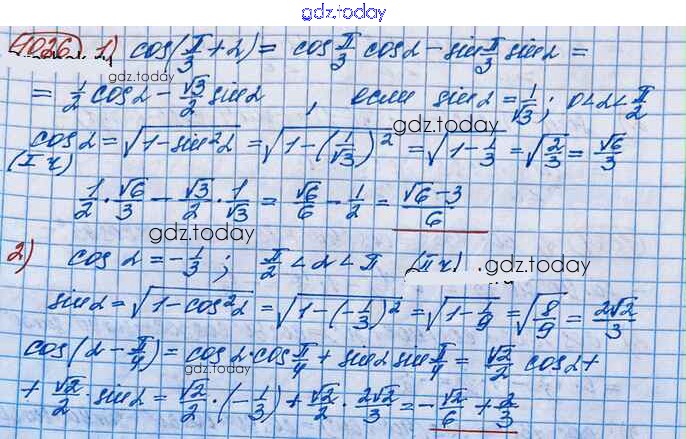 gdz.today
1026 1) cos(π/3 + α) = cos π/3 cos α - sin π/3 sin α =
gdz.today
= 1/2 cos α - √3/2 sin α , если sin α = 1/√3 ; 0 < α < π/2
gdz.today
cos α = √(1 - sin²α) = √(1 - (1/√3)²) = √(1 - 1/3) = √(2/3) = √6/3
(I ч)
1/2 · √6/3 - √3/2 · 1/√3 = √6/6 - 1/2 = (√6 - 3)/6
gdz.today
2) cos α = -1/3 ; π/2 < α < π (II ч) .
gdz.today
sin α = √(1 - cos²α) = √(1 - (-1/3)²) = √(1 - 1/9) = √(8/9) = 2√2/3
cos(α - π/4) = cos α · cos π/4 + sin α sin π/4 = √2/2 cos α +
gdz.today
+ √2/2 · sin α = √2/2 · (-1/3) + √2/2 · 2√2/3 = -√2/6 + 2/3
gdz.today